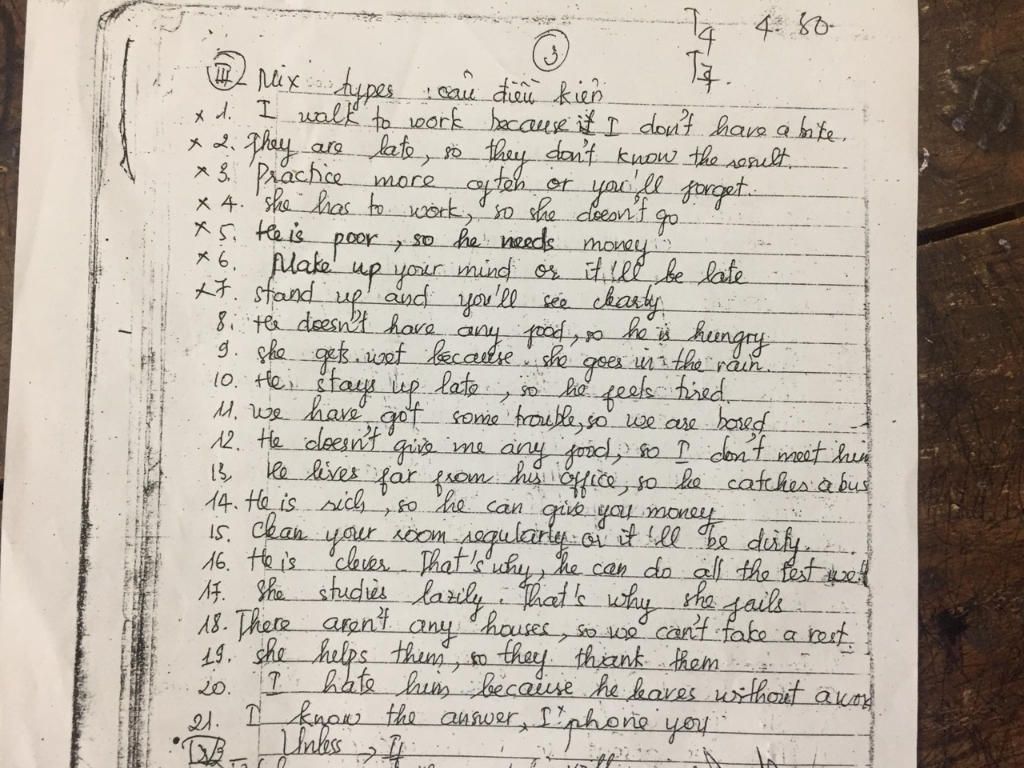 T4 4-80
3 T7
III- Mix types câu điều kiện
x 1. I walk to work because it I don't have a bike.
x 2. They are late, so they don't know the result.
x 3. Practice more often or you'll forget.
x 4. she has to work, so she doesn't go
x 5. He is poor, so he needs money
x 6. Make up your mind or it'll be late
x 7. stand up and you'll see clearly
8. He doesn't have any food, so he is hungry
9. she gets wet because she goes in the rain.
10. He stays up late, so he feels tired.
11. we have got some trouble, so we are bored
12. He doesn't give me any food, so I don't meet him
13. He lives far from his office, so he catches a bus
14. He is rich, so he can give you money
15. Clean your room regularly or it'll be dirty.
16. He is clever. That's why, he can do all the test well
17. She studies lazily. That's why she fails
18. There aren't any houses, so we can't take a rest.
19. she helps them, so they thank them
20. I hate him because he leaves without a word
21. I know the answer, I'phone you
Unless, If